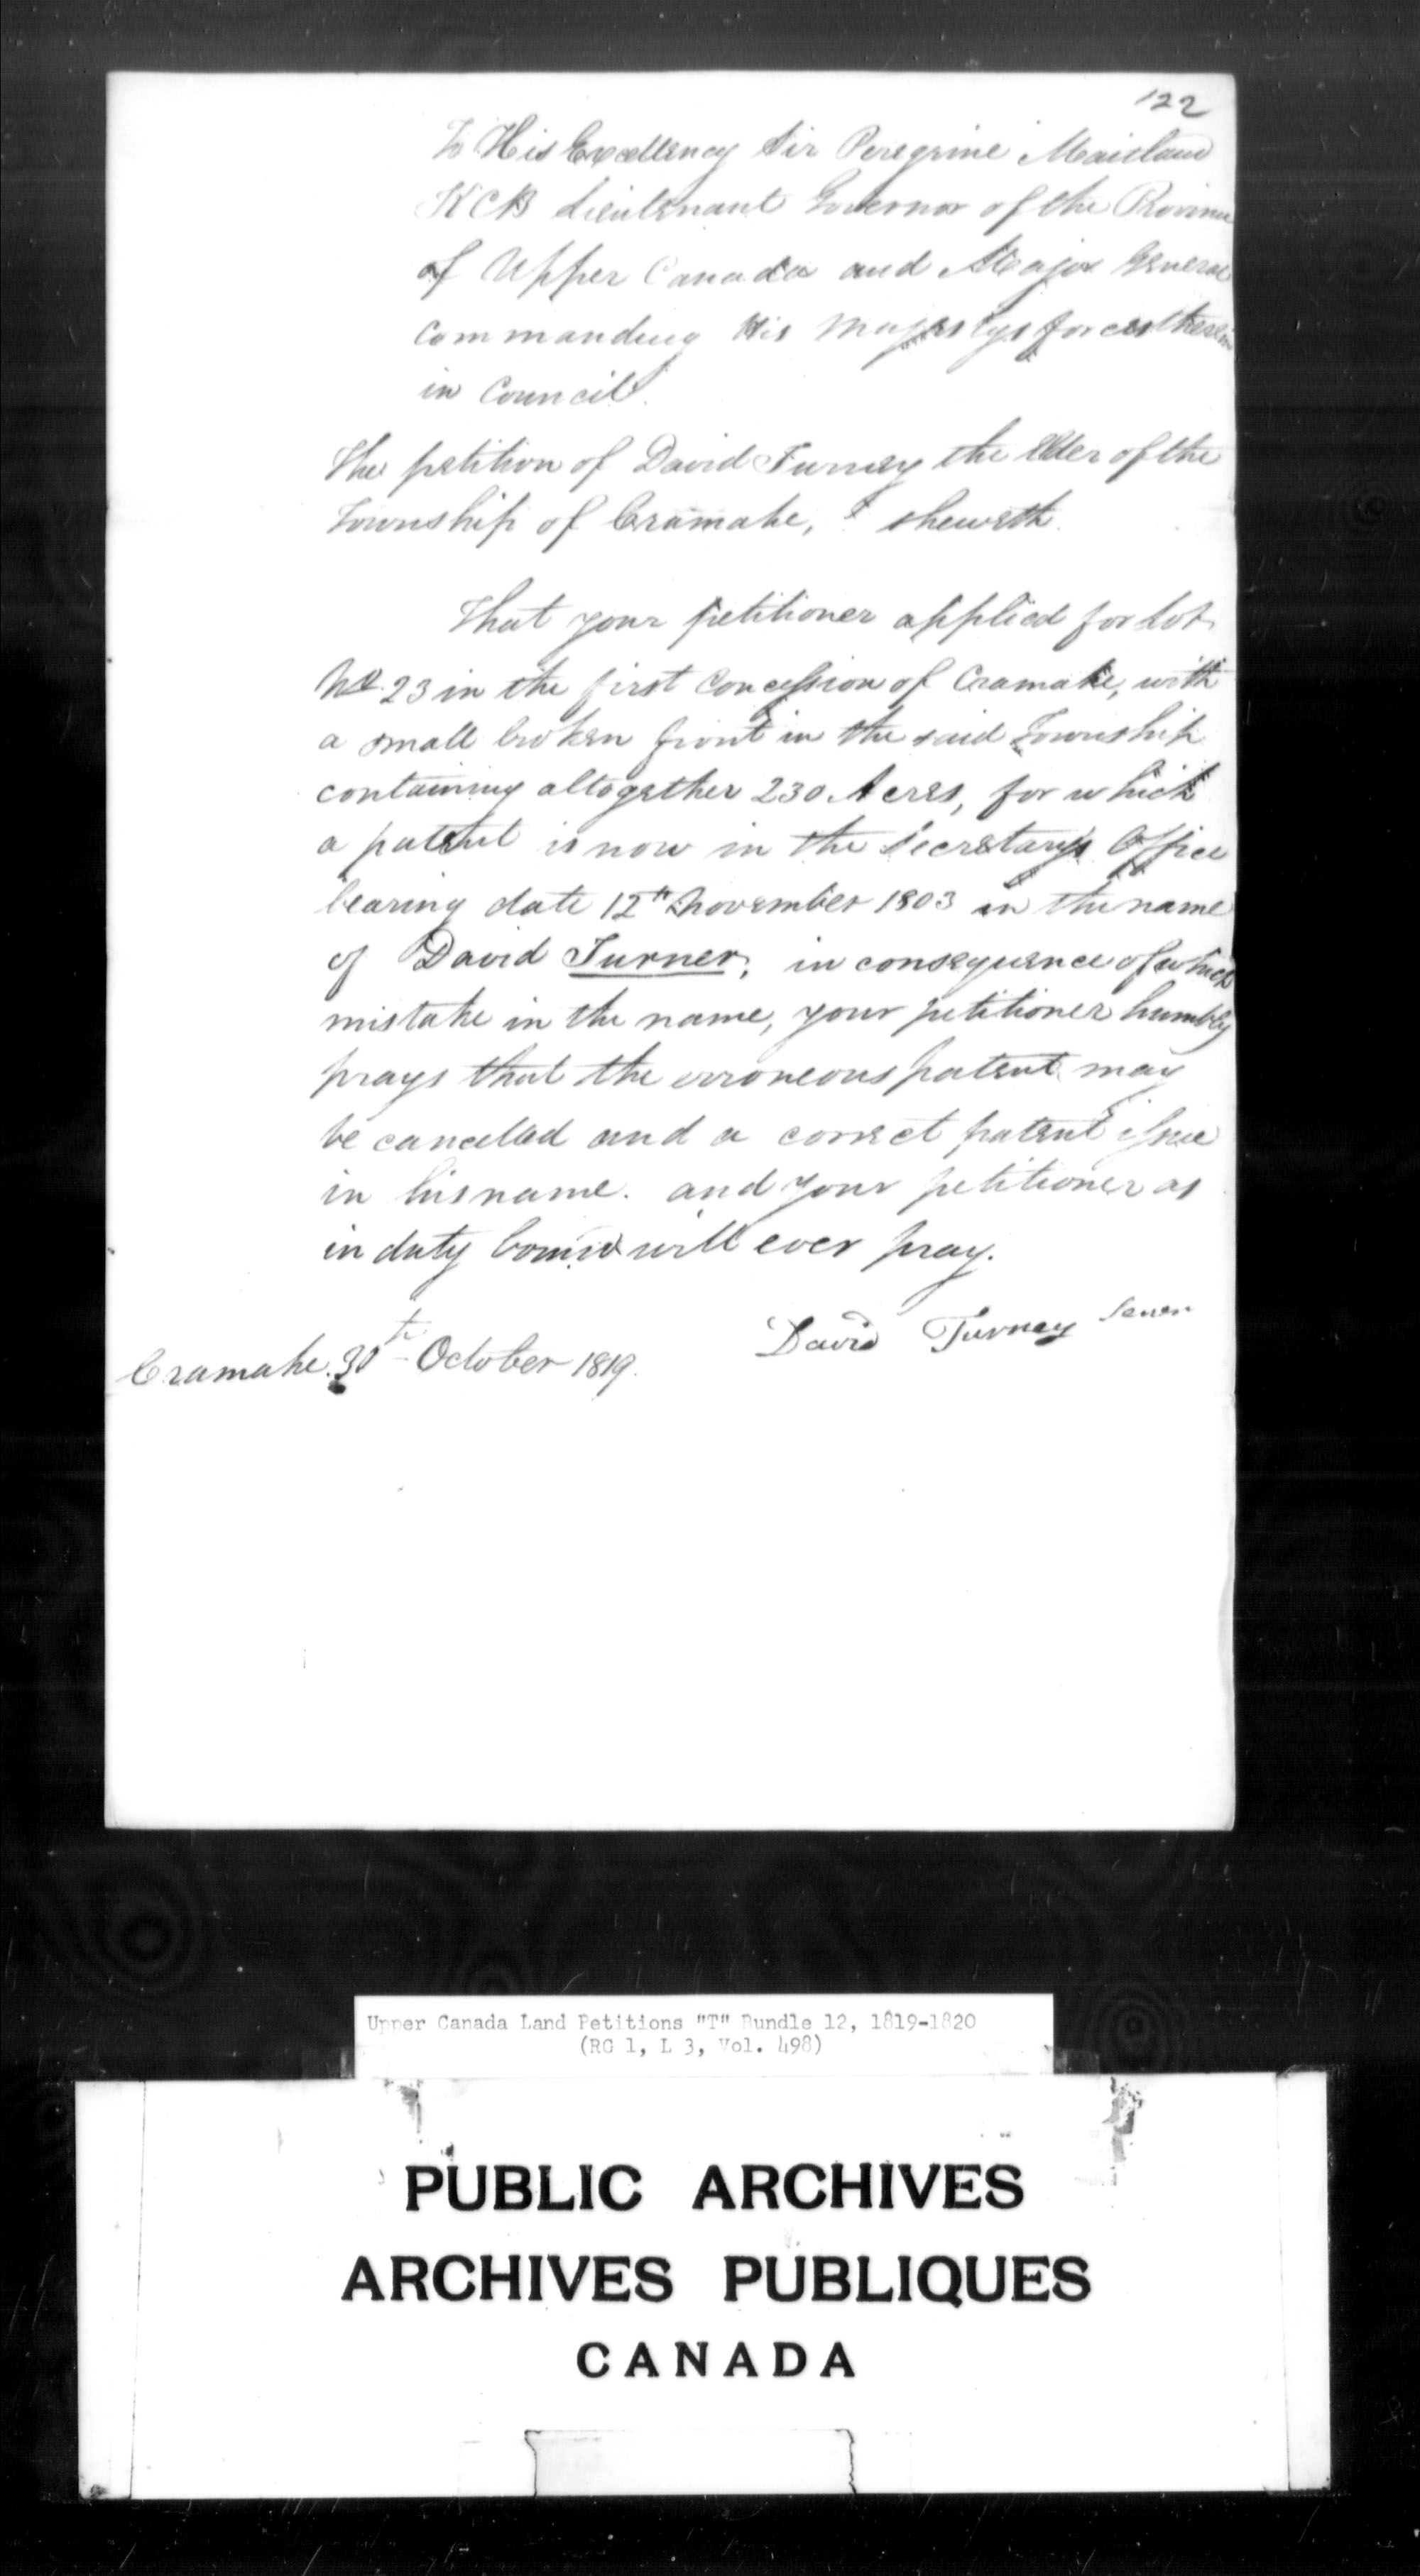 122
To His Excellency Sir Peregrine Maitland
KCB Lieutenant Governor of the Province
of Upper Canada and Major General
Commanding His Majestys forces therein
in Council.
The petition of David Turney the Elder of the
Township of Cramahe, sheweth.
That your petitioner applied for Lot
No 23 in the first Concession of Cramahe, with
a small broken front in the said Township
containing altogether 230 Acres, for which
a patent is now in the Secretarys Office
bearing date 12th November 1803 in the name
of David Turner, in consequence of which
mistake in the name, your petitioner humbly
prays that the erroneous patent may
be cancelled and a correct patent issue
in his name. and your petitioner as
in duty bound will ever pray.
David Turney
Cramahe. 30th October 1819.
Upper Canada Land Petitions "T" Bundle 12, 1819-1820
(RG 1, L 3, Vol. 498)
PUBLIC ARCHIVES
ARCHIVES PUBLIQUES
CANADA